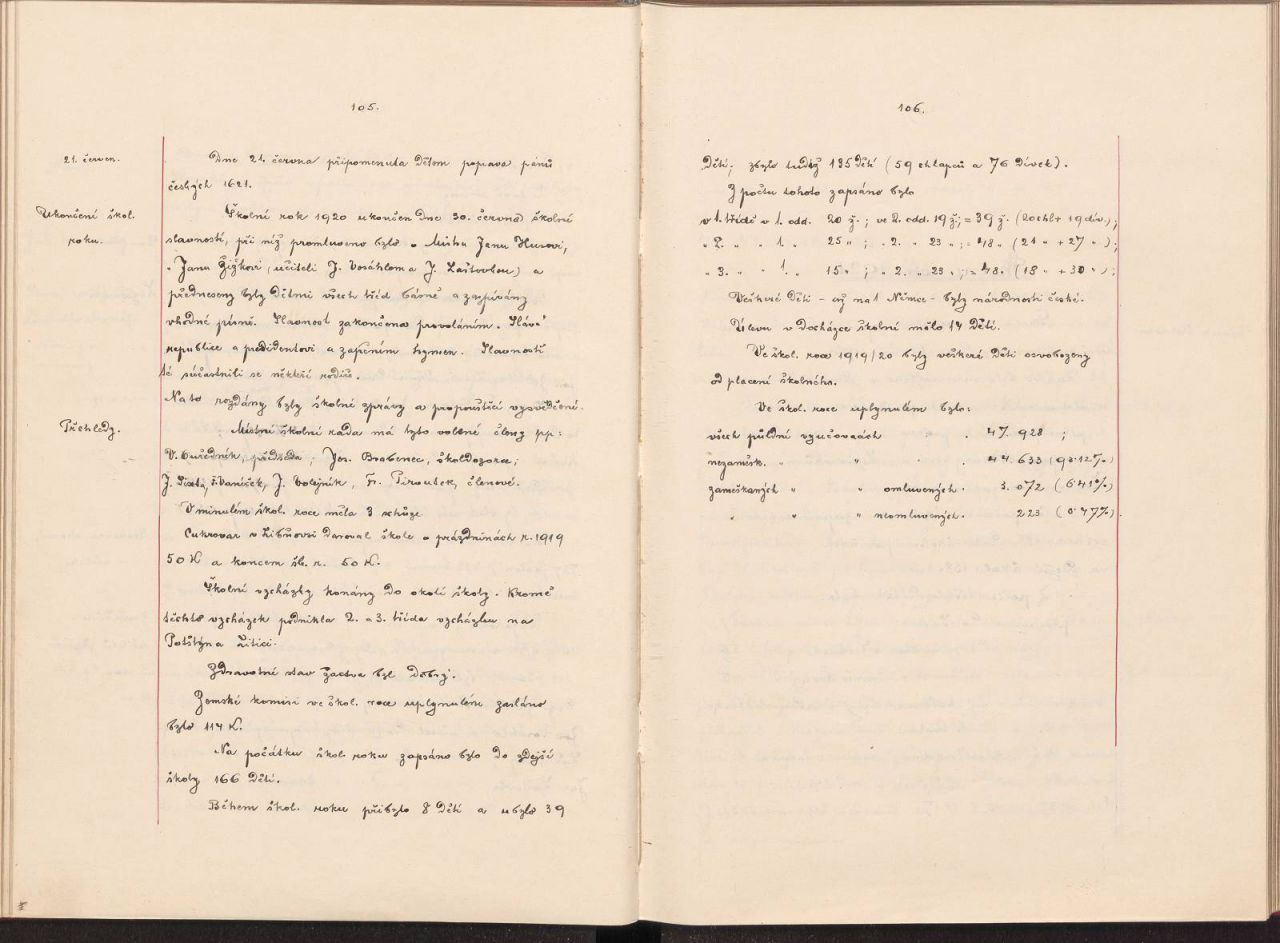 105.
21. červen.
Dne 21. června připomenuta dětem poprava pánů
českých 1621.
Ukončení škol.
roku.
Školní rok 1920 ukončen dne 30. června školní
slavností, při níž promluveno bylo o Mistru Janu Husovi,
o Janu Žižkovi (učiteli J. Vosáhlem a J. Laštovkou) a
předneseny byly dětmi všech tříd básně a zazpívány
vhodné písně. Slavnost zakončena provoláním "Sláva"
republice a presidentovi a zapěním hymen. Slavnosti
té súčastnili se někteří rodiče.
Na to rozdány byly školní zprávy a propouštěcí vysvědčení.
Přehledy.
Místní školní rada má tyto volené členy pp:
V. předseda; Jos. Brabenec, škol. dozorce;
J. Vaníček, J. Volejník, Fr. Piroutek, členové.
V minulém škol. roce měla 3 schůze.
Cukrovar v daroval škole o prázdninách r. 1919
50 K a koncem šk. r. 50 K.
Školní vycházky konány do okolí školy. Kromě
těchto vycházek podnikla 2. a 3. třída vycházku na
Potštýn a Litici.
Zdravotní stav žactva byl dobrý.
Zemské komisi ve škol. roce uplynulém zasláno
bylo 114 K.
Na počátku škol. roku zapsáno bylo do zdejší
školy 166 dětí.
Během škol. roku přibylo 8 dětí a ubylo 39
106.
dětí; zbylo tudíž 135 dětí (59 chlapců a 76 dívek).
Z počtu tohoto zapsáno bylo
v 1. třídě v 1. odd. 20 ž.; ve 2. odd. 19 ž.; = 39 ž. (20 chl + 19 dív.);
" 2. " " 1. " 25 " ; " 2. " 23 " ; = 48 " (21 " + 27 " );
" 3. " " 1. " 15 " ; " 2. " 23 " ; = 48 " (18 " + 30 " );
Veškeré děti - až na 1 Němce - byly národnosti české.
Úlevu v docházce školní mělo 14 dětí.
Ve škol. roce 1919/20 byly veškeré děti osvobozeny
od placení školného.
Ve škol. roce uplynulém bylo:
všech půldní vyučovacích . . 47.928 ;
nezamešk. " " . . 44.633 (93.12%)
zameškaných " " omluvených . 3.072 (6.41%)
" " " neomluvených . 223 (0.47%)